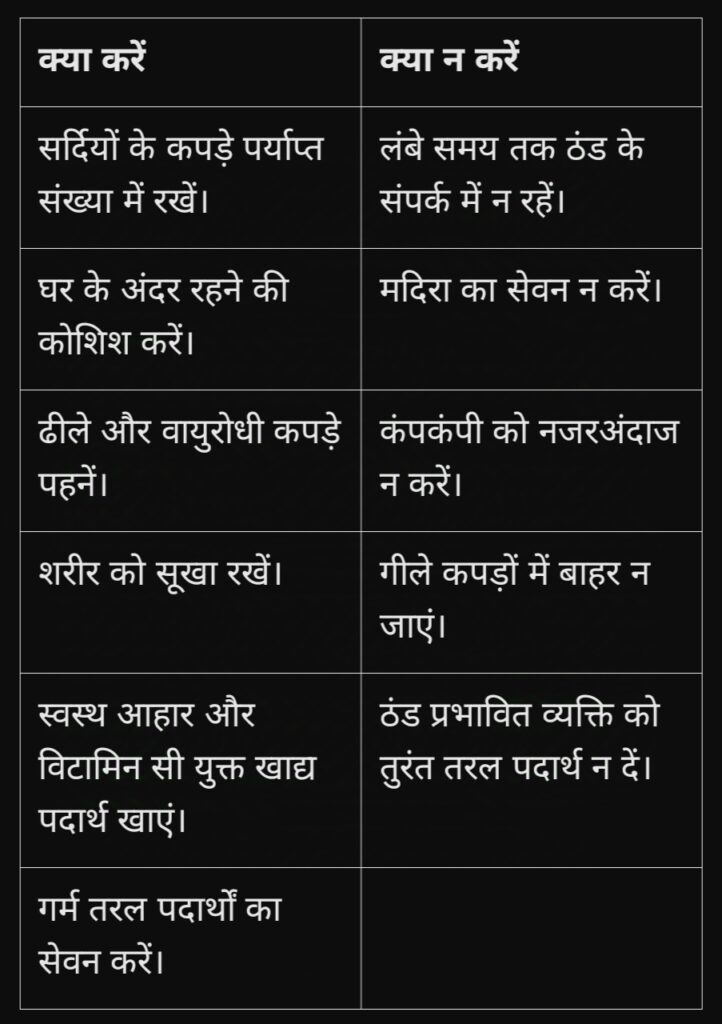 क्या करें
क्या न करें
सर्दियों के कपड़े पर्याप्त
संख्या में रखें।
लंबे समय तक ठंड के
संपर्क में न रहें।
घर के अंदर रहने की
कोशिश करें।
मदिरा का सेवन न करें।
ढीले और वायुरोधी कपड़े
पहनें।
कंपकंपी को नजरअंदाज
न करें।
शरीर को सूखा रखें।
गीले कपड़ों में बाहर न
जाएं।
स्वस्थ आहार और
विटामिन सी युक्त खाद्य
पदार्थ खाएं।
ठंड प्रभावित व्यक्ति को
तुरंत तरल पदार्थ न दें।
गर्म तरल पदार्थों का
सेवन करें।